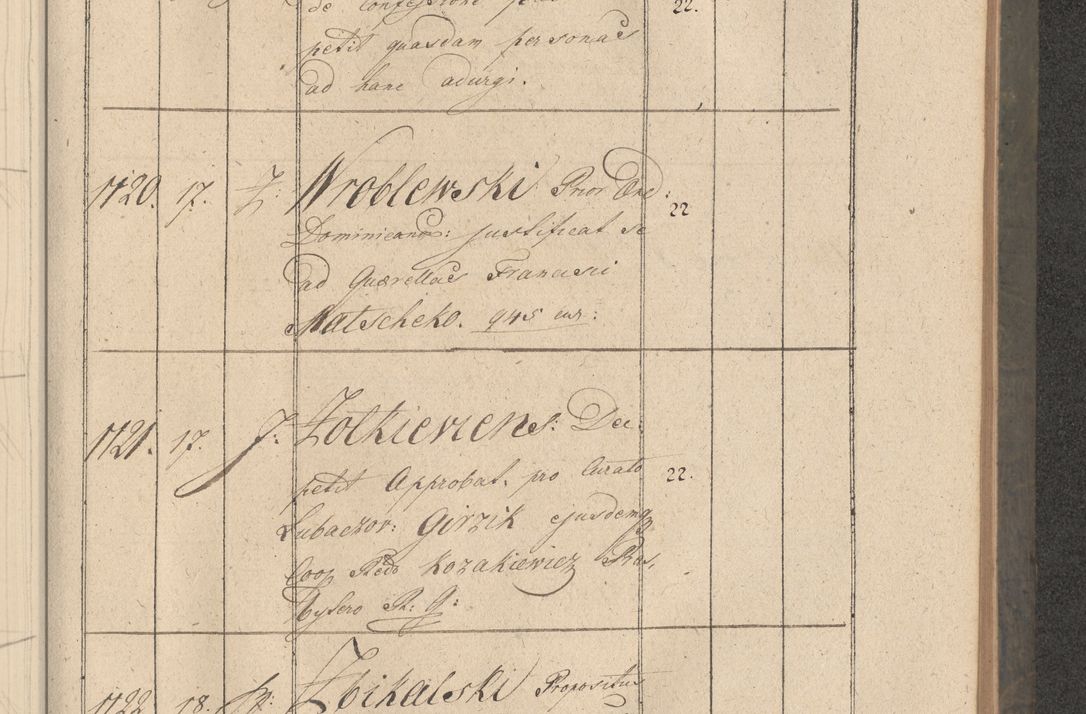 22.
petit quasdam personas
ad hanc adurgi.
1720. 17. Wroblewski Prior Ord: 22
Dominicano: justificat se
ad Querellas Francisci
Matscheko. 945 cur:
1721. 17. J: Zolkiewiens: Dec:
petit Approbat. pro Curato 22.
Lubaczov: Girzik ejusdemq
Coop Redo Kozakiewicz
R: G:
1722. 18. Zbikalski Propositus